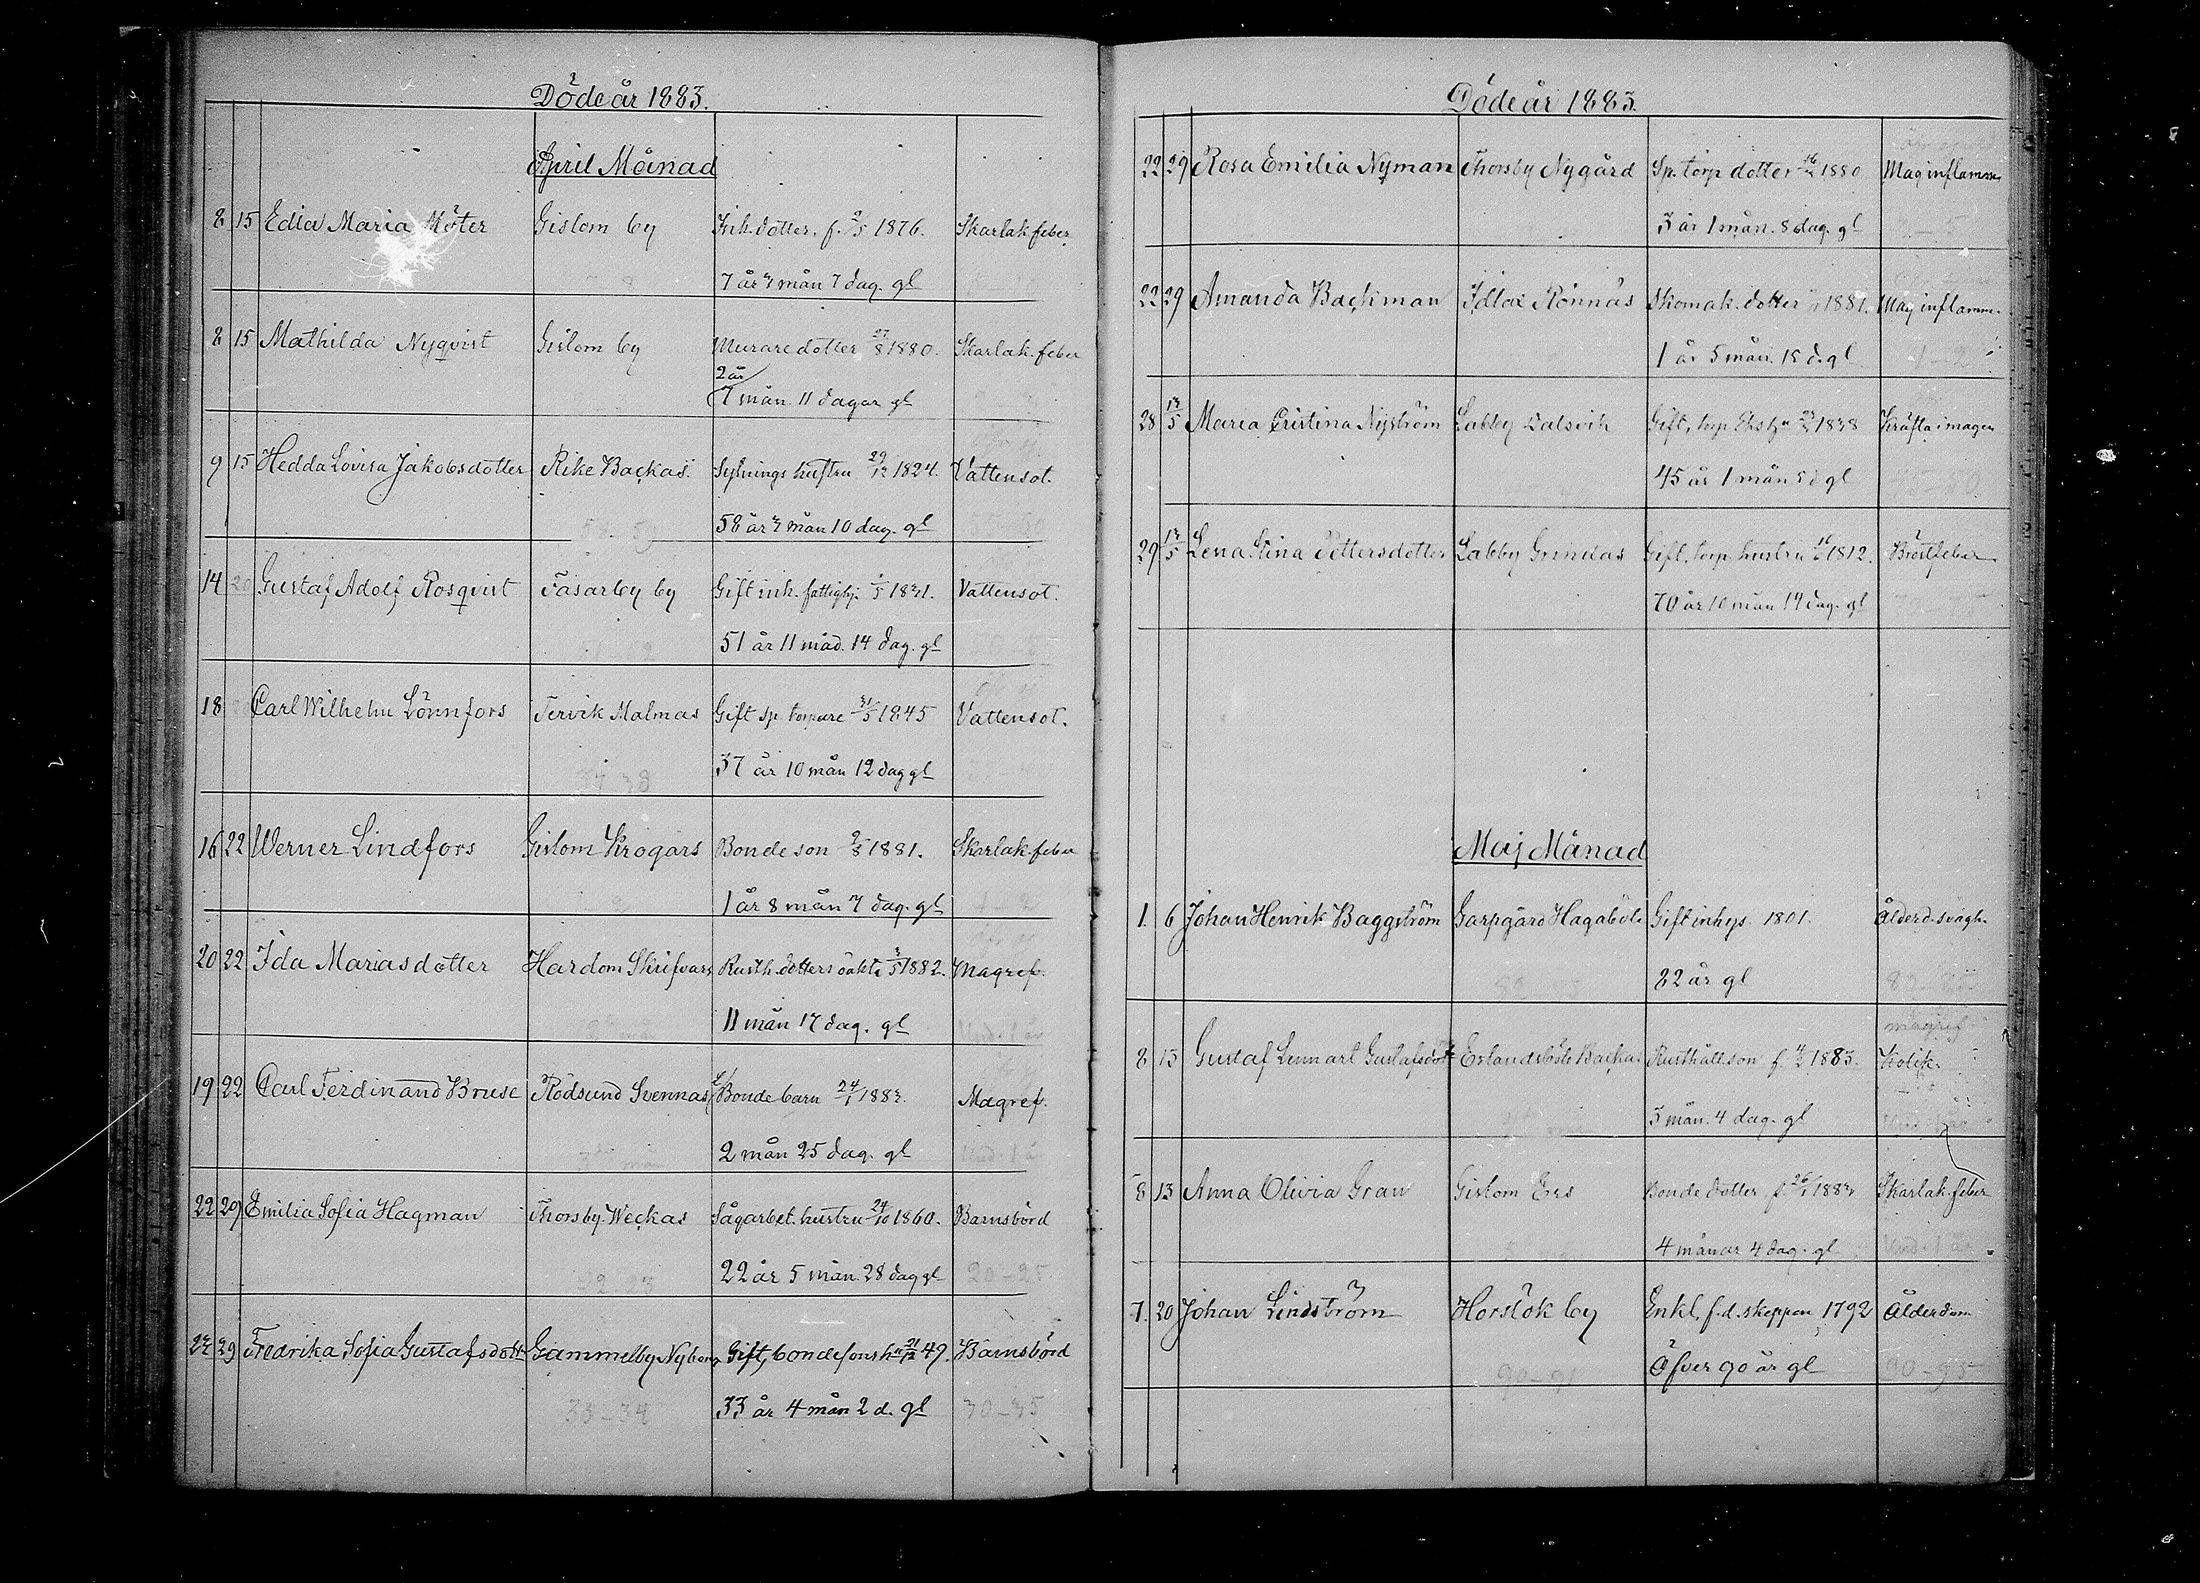 Döde år 1883.
April Månad
8 15 Edla Maria Möter Gislom by Inh. dotter. f. 2/5 1876. Skarlak.feber
7 år mån 7 dag. gl
8 15 Mathilda Nyqvist Gislom by Murare dotter 27/8 1880. Skarlak.feber
2 år
7 mån 11 dagar gl
9 15 Hedda Lovisa Jakobsdotter Rike Backas. Sytnings hustru 29/12 1824. Vattensot.
58 år 3 mån 10 dag. gl
14 20 Gustaf Adolf Rosqvist Fasarby by Gift inh. fattighj. 1/5 1831. Vattensot.
51 år 11 måd. 14 dag. gl
18 Carl Wilhelm Lönnfors Tervik Malmas Gift sp. torpare 31/5 1845 Vattensot.
37 år 10 mån 12 dag gl
37 38
16 22 Werner Lindfors Gislom Krogars Bonde son 9/8 1881. Skarlak.feber
1 år 8 mån 7 dag. gl
20 22 Ida Mariasdotter Hardom Skrifvars Rusth. dotters oäkta 3/5 1882. Magref.
11 mån 17 dag. gl
19 22 Carl Ferdinand Bruse Rödsund Svennas Bonde barn 24/1 1883. Magref.
2 mån 25 dag. gl
22 29 Emilia Sofia Hagman Thorsby Weckas Sågarbet. hustru 24/10 1860. Barnsbörd
22 år 5 mån. 28 dag gl
22 23 20-25
23 29 Fredrika Sofia Gustafsdott Gammelby Nybondas Gift, bondesons h:u 21/12 49. Barnsbörd
33 år 4 mån 2 d. gl
33-34 30-35
Döde år 1883.
22 29 Rosa Emilia Nyman Thorsby Nygård Sp. torp dotter 1880 Mag inflamm
3 år 1 mån. 8 dag. gl
22 29 Amanda Backman Idlax Rönnäs Skomak. dotter 1881. Mag inflamm.
1 år 5 mån. 18 d. gl
28 13/5 Maria Cristina Nyström Labby Dalsvik Gift, torp. 1838 Kräfta i magen
45 år 1 mån 5 d gl
45-50
29 13/5 Lena Stina Pettersdotter Labby Grindas Gift, torp. hustru 1812. Bröstfeber
70 år 10 mån 14 dag. gl
Maj Månad
1. 6 Johan Henrik Baggström Garpgård Hagaböle Gift inhys. 1801. Ålderd. svagh.
82 år gl
magref
8 13 Gustaf Lennart Gustafsdott Erlandsböle Backas Rusthåll son f. 4/2 1883. Kolik.
3 mån. 4 dag. gl
8 13 Anna Olivia Gran Gislom Ers Bonde dotter f. 1883 Skarlak.feber
4 månar 4 dag. gl
7. 20 Johan Lindström Horslök by Enkl. f.d. skeppare 1792 Ålderdom
Öfver 90 år gl
90-91 90-95